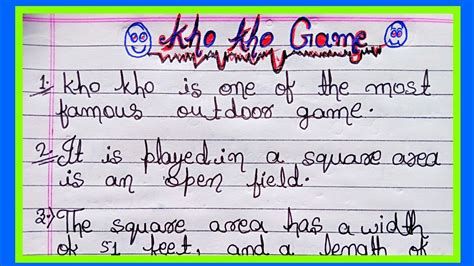 Kho Kho Game
1. Kho kho is one of the most
famous outdoor game.
2. It is played in a square area
is an open field.
3.) The square area has a width
of 51 feet, and a length of